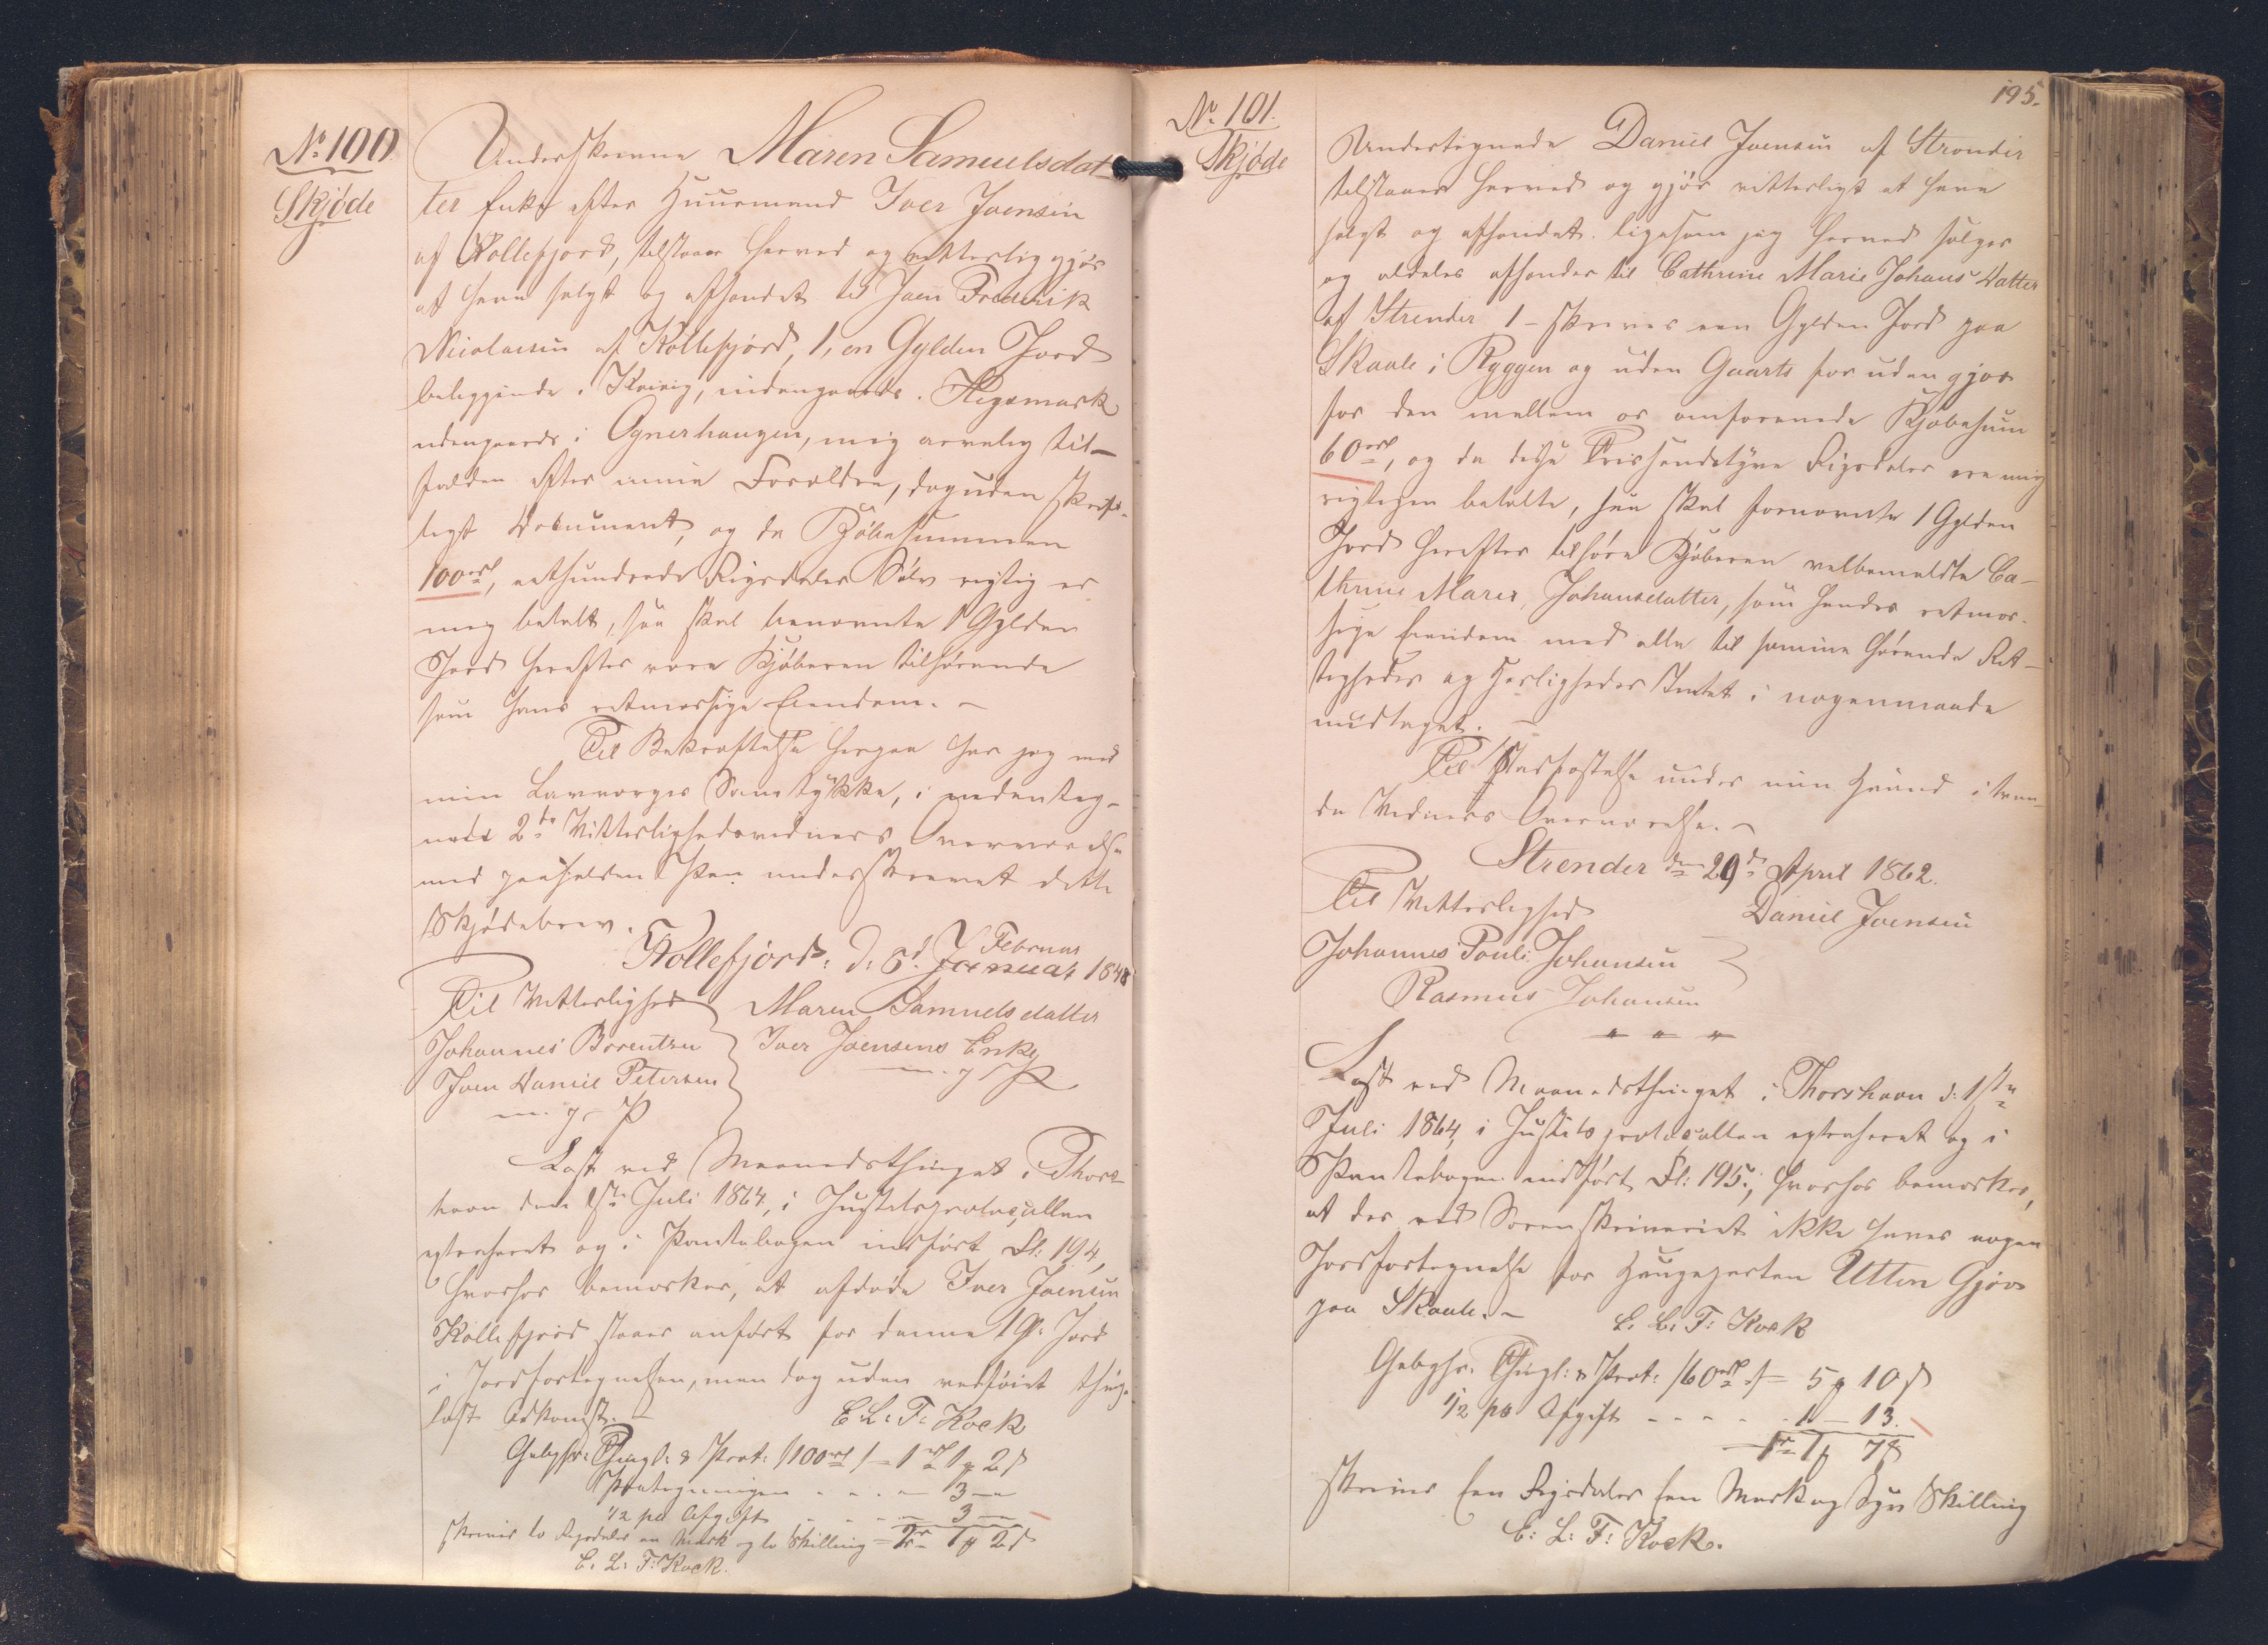 No. 100
Skjøde
Underskrevne Maren Samuelsdat-
ter Enke efter Huusmand Iver Joensen
af Kollefjord, tilstaaer herved og vitterlig gjør
at have solgt og afhendet til Joen Frederik
Nicolaisen af Kollefjord, 1, en Gylden Jord
beliggende i Kvivig, indengaards i Heyæmark
udengaards i Ognerhaugen, mig arvelig til-
falden efter mine Forældre, dog uden skrift-
ligt Document, og da Kjøbesummen
100 rd, eethundrede Rigsdaler Sølv rigtig er
mig betalt, saa skal benævnte 1 Gylden
Jord herefter være Kjøberen tilhørende
som hans retmæssige Eiendom. –
Til Bekræftelse herpaa har jeg med
min Lavværges Samtykke, i undenteg-
nede 2de Vitterlighedsvidners Overværelse
med paaholden Pen underskrevet dette
Skjødebrev.
Kollefjord, d. 8d. Januar Februar 1848
Til Vitterlighed Maren Samuelsdatter
Johannes Berentsen Iver Joensens Enke
Joen Daniel Petersen m. f. P
m. f. P
Læst ved Maanedsthinget i Thors-
havn den 1ste Juli 1864, i Justitsprotocollen
extraheret og i Pantebogen indført Fl: 194,
hvorhos bemærkes, at afdøde Iver Joensen
Kollefjord staaer anført for denne 1 G: Jord
i Jordfortegnelsen, men dog uden vedføiet thing-
læst Adkomst. – E: L: F: Kock
Gebyhr: Thingl: & Prot: /100 rd/ = 1 rd 1 mk 2 s
Paategningen - - - 3 -
1/2 pc Afgift - - - 3 -
skriver to Rigsdaler en Mark og to Skilling = 2 rd 1 mk 2 s
E. L: F: Kock.
195.
No. 101.
Skjøde
Undertegnede Daniel Joensen af Strender
tilstaaer herved og gjør vitterligt at have
solgt og afhendet. ligesom jeg herved sælger
og aldeles afhender til Cathrine Marie Johans Datter
af Strender 1 – skriver een Gylden Jord paa
Skaale i Ryggen og uden Gaarts for uden gjov
for den mellem os omforenede Kjøbesum
60 rd, og da disse Trisindstyve Rigsdaler ere mig
rigtigen betalte, saa skal fornævnte 1 Gylden
Jord herefter tilhøre Kjøberen velbemeldte Ca-
thrine Marie Johansdatter, som hendes retmæs-
sige Eiendom med alle til samme hørende Ret-
tigheder og Herligheder Intet i nogenmaade
undtaget. –
Til Stadfæstelse under min Haand i tven-
de Vidners Overværelse. –
Strender den 29d April 1862.
Til Vitterlighed Daniel Joensen
Johannes Pouli Johansen
Rasmus Johansen
Læst ved Maanedsthinget i Thorshavn d: 1ste
Juli 1864, i Justitsprotocollen extraheret og i
Pantebogen indført Fl: 195, hvorhos bemærkes,
at der ved Sorenskriveriet ikke haves nogen
Jordfortegnelse for Haugeparten Utten Gjøv
paa Skaale. – E. L: F: Kock
Gebyhr. Thingl: & Prot: /60 rd/ = 5 mk 10 s
1/2 pc Afgift - - - - 1 – 13.
1 rd 1 mk 7 s
skriver Een Rigsdaler Een Mark og Syv Skilling
E: L: F: Kock.